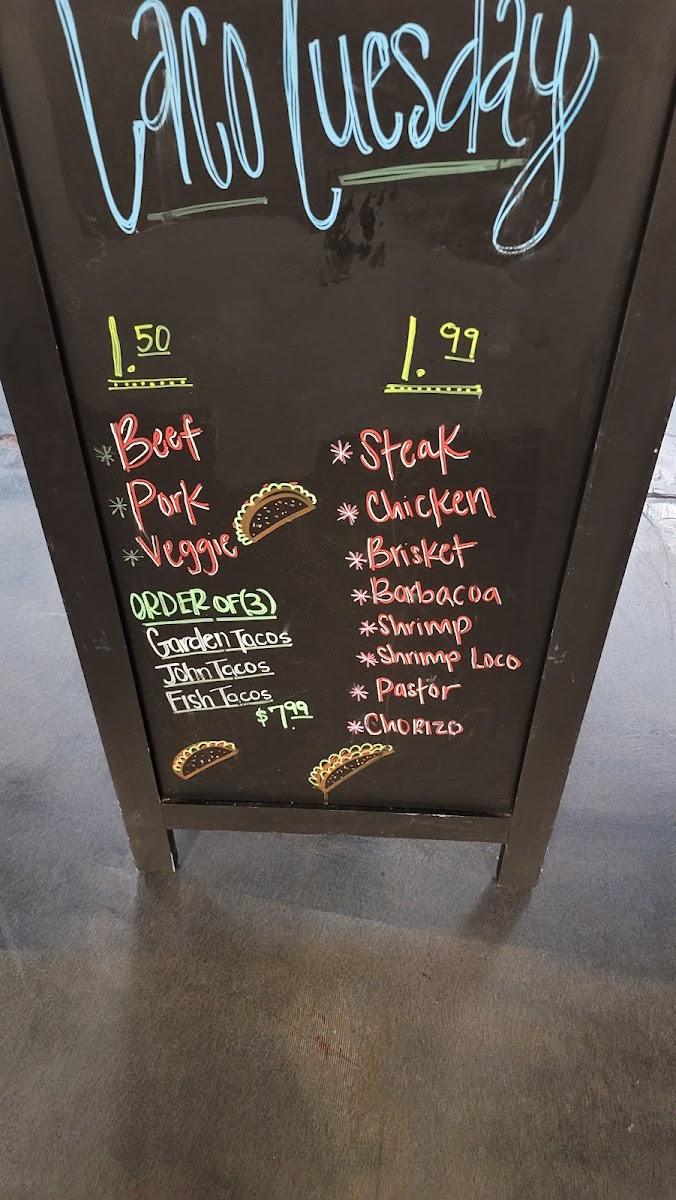 Taco Tuesday
1.50
* Beef
* Pork
* Veggie
ORDER OF (3)
Garden Tacos
John Tacos
Fish Tacos
$7.99
1.99
* Steak
* Chicken
* Brisket
* Barbacoa
* Shrimp
* Shrimp Loco
* Pastor
* CHORIZO